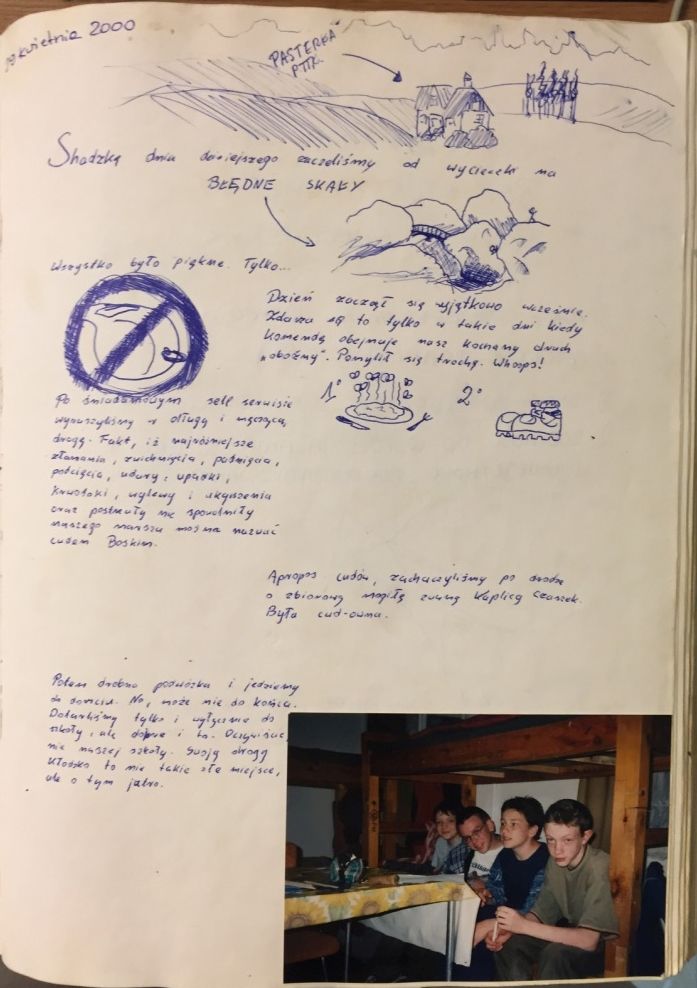 kwietnia 2000
PASTERKA
PTTK
dnia dzisiejszego zaczeliśmy od wycieczki na
BŁĘDNE SKAŁY
Wszystko było piękne. Tylko...
Dzień zaczął się wyjątkowo wcześnie.
Zdarza się to tylko w takie dni kiedy
komendę obejmuje nasz kochany druh
„oboźny". Pomylił się trochę. Whoops!
1°
2°
Po śniadaniowym self serwisie
wyruszyliśmy w długą i męczącą
drogę. Fakt, iż najróżniejsze
złamania, zwichnięcia,
udary, upadki,
krwotoki, wylewy i
oraz postrzały nie
naszego marszu można nazwać
cudem Boskim.
Apropos cudów, zachaczyliśmy po drodze
o zbiorową mogiłę zwaną Kaplicą Czaszek.
Była cud-owna.
Potem drobna podwózka i jedziemy
do domciu. No, może nie do końca.
Dotarliśmy tylko i wyłącznie do
szkoły, ale dobre i to. Oczywiście
nie naszej szkoły. Swoją drogą
Kłodzko to nie takie złe miejsce,
ale o tym jutro.